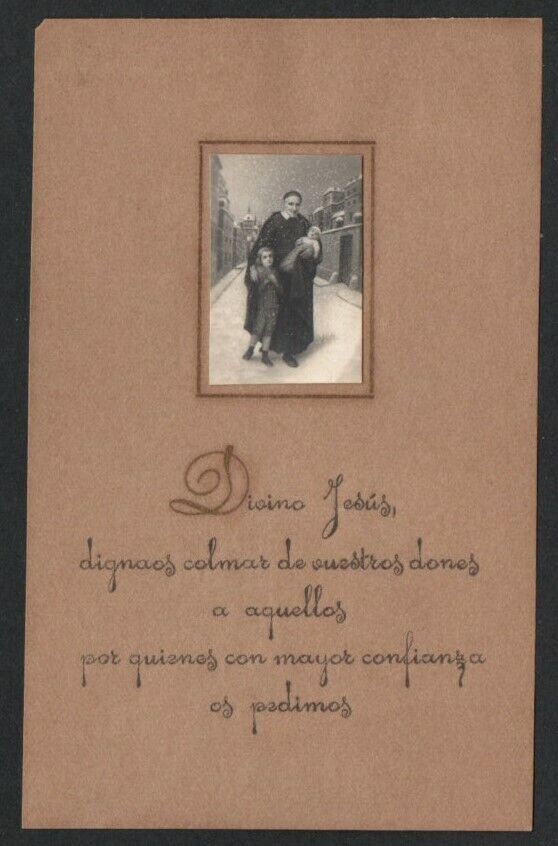 Divino Jesús,
dignaos colmar de vuestros dones
a aquellos
por quienes con mayor confianza
os pedimos